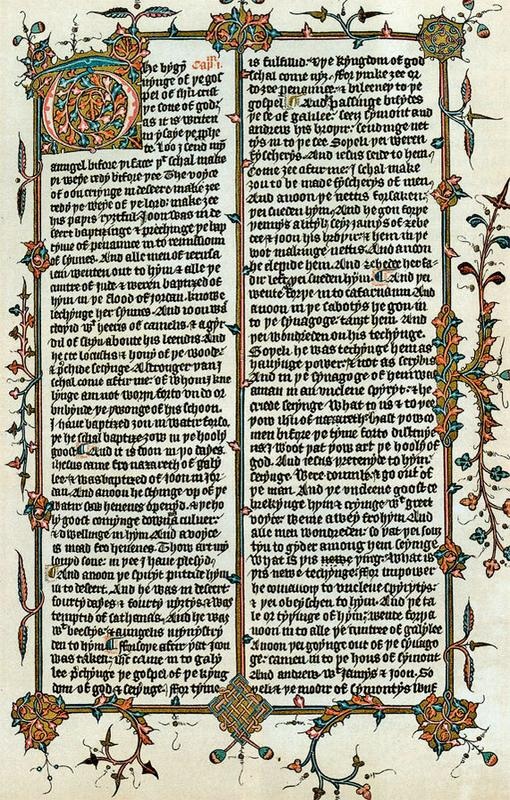 Cap. I.
The bygy
nynge of þe gos
pel of ihū crist
þe sone of god;
as it is writen
in ysaye þe pphe
te. Loo I send my
aungel bifore þi face þt schal make
þi weye redy bifore þee. The voyce
of oon cryinge in desert. make ȝee
redy þe weye of þe lord. make ȝee
his paþis ryȝtful. Joon was in de
sert baptisinge & prechinge þe bap
tyme of penaunce in to remissioun
of synnes. And alle men of ierusa
lem wenten out to hym & alle þe
cuntre of jude & weren baptised of
hym in þe flood of jordan. knowe
lechynge her synnes. And ioon was
cloþid wt heeris of camelis & a gyr
dil of skyn aboute his leendis. And
he eet locustis & hony of þe wode.
& prechide seiynge. A stronger þan I
schal come aftir me. of whom I kne
lynge am not worþi forto vndo or
vnbynde þe þwonge of his schoon.
I have baptised ȝou in watir forsoþ
þe he schal baptise ȝow in þe hooly
goost. And it is doon in þo dayes.
ihesus came fro nazareth of galy
lee & was baptised of ioon in jor
dan. And anoon he stiynge up of þe
watir saw heuenes opened. & þe ho
ly goost comynge doun as culuer.
& dwellinge in hym. And a voyce
is maad fro heuenes. Thou art my
louyd sone. in þee I haue plesyd.
And anoon þe spiryt puttide hym
in to desert. And he was in desert
fourty dayes & fourty nyȝtis. & was
temptid of sathanas. And he was
wt beestys. & aungelis mynystry
den to hym. Forsoþe aftir þat joon
was taken. ihc came in to galy
lee prechynge þe gospel of þe kyng
dom of god & seiynge. For tyme
is fulfillid. & þe kyngdom of god
schal come nyȝ. for þinke ȝee or
do ȝee penaunce. & bileeue to þe
gospel. And passinge bisydes
þe see of galilee. seeȝ symont and
andrew his broþir. sendinge net
tys in to þe see. Soþeli þei weren
fyscherys. And iesus seide to hem.
Come ȝee aftir me. I schal make
ȝou to be made fyscherys of men.
And anoon þe nettis forsaken.
þei sueden hym. And he gon forþe
þennys a litil seeȝ jamys of zebe
dee & joon his broþir. & hem in þe
boot makinge nettis. And anoon
he clepide hem. And zebedee her fa
dir left. þei sueden hym. And þei
wente forþe in to cafarnaum. And
anoon in þe sabotys he gon in
to þe synagoge. tauȝt hem. And
þei wondreden on his techynge.
Soþeli he was techynge hem as
hauynge power. & not as scrybis
And in þe synagoge of hem was
a man in an vnclene spiryt. & he
criede seiynge. What to us & to þee
þow ihū of nazareth hast þow co
men bifore þe tyme forto distruye
us I woot þat þow art þe hooly of
god. And iesus þretenyde to hym.
seiynge. Were doumb. & go out of
þe man. And þe vnclene goost de
brekynge hym. & cryinge wt greet
voyce. wente awey fro hym. And
alle men wondreden. so þat þei souȝ
tyn to gyder among hem seiynge
What is þis newe þing. what is
þis newe techynge. For in power
he comaundiþ to vnclene spirytys.
& þei obeyschen to hym. And þe ta
le or tyþinge of hym: wente forþ a
noon in to alle þe cuntree of galylee
Anoon þei goynge out of þe synago
ge. camen in to þe hous of symont
And andrew. wt Jamys & joon. So
þeli & þe modir of symontys wiif